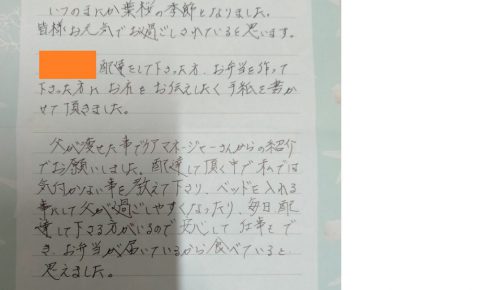 いつのまにか葉桜の季節となりました。
皆様お元気でお過ごしされていると思います。
配達をして下さった方、お弁当を作って
下さった方にお礼をお伝えしたく手紙を書か
せて頂きました。
父が痩せた事でケアマネージャーさんからの紹介
でお願いしました。配達して頂く中で私では
気付かない事を教えて下さり、ベッドを入れる
事にして父が過ごしやすくなったり、毎日配
達して下さる方がいるので安心して仕事もで
き、お弁当が届いているから食べていると
思えました。